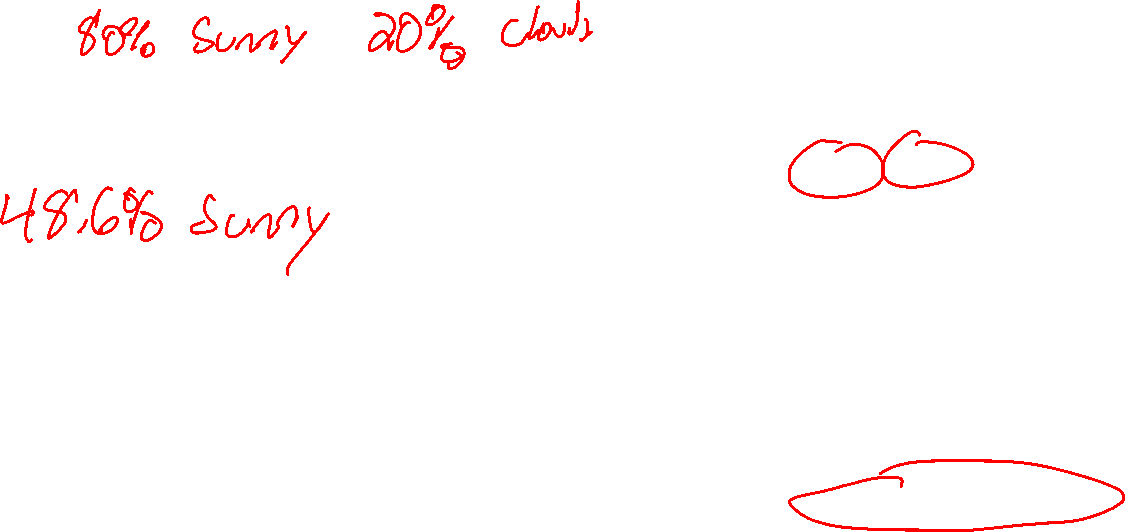 80% Sunny 20% clouds
48.6% Sunny